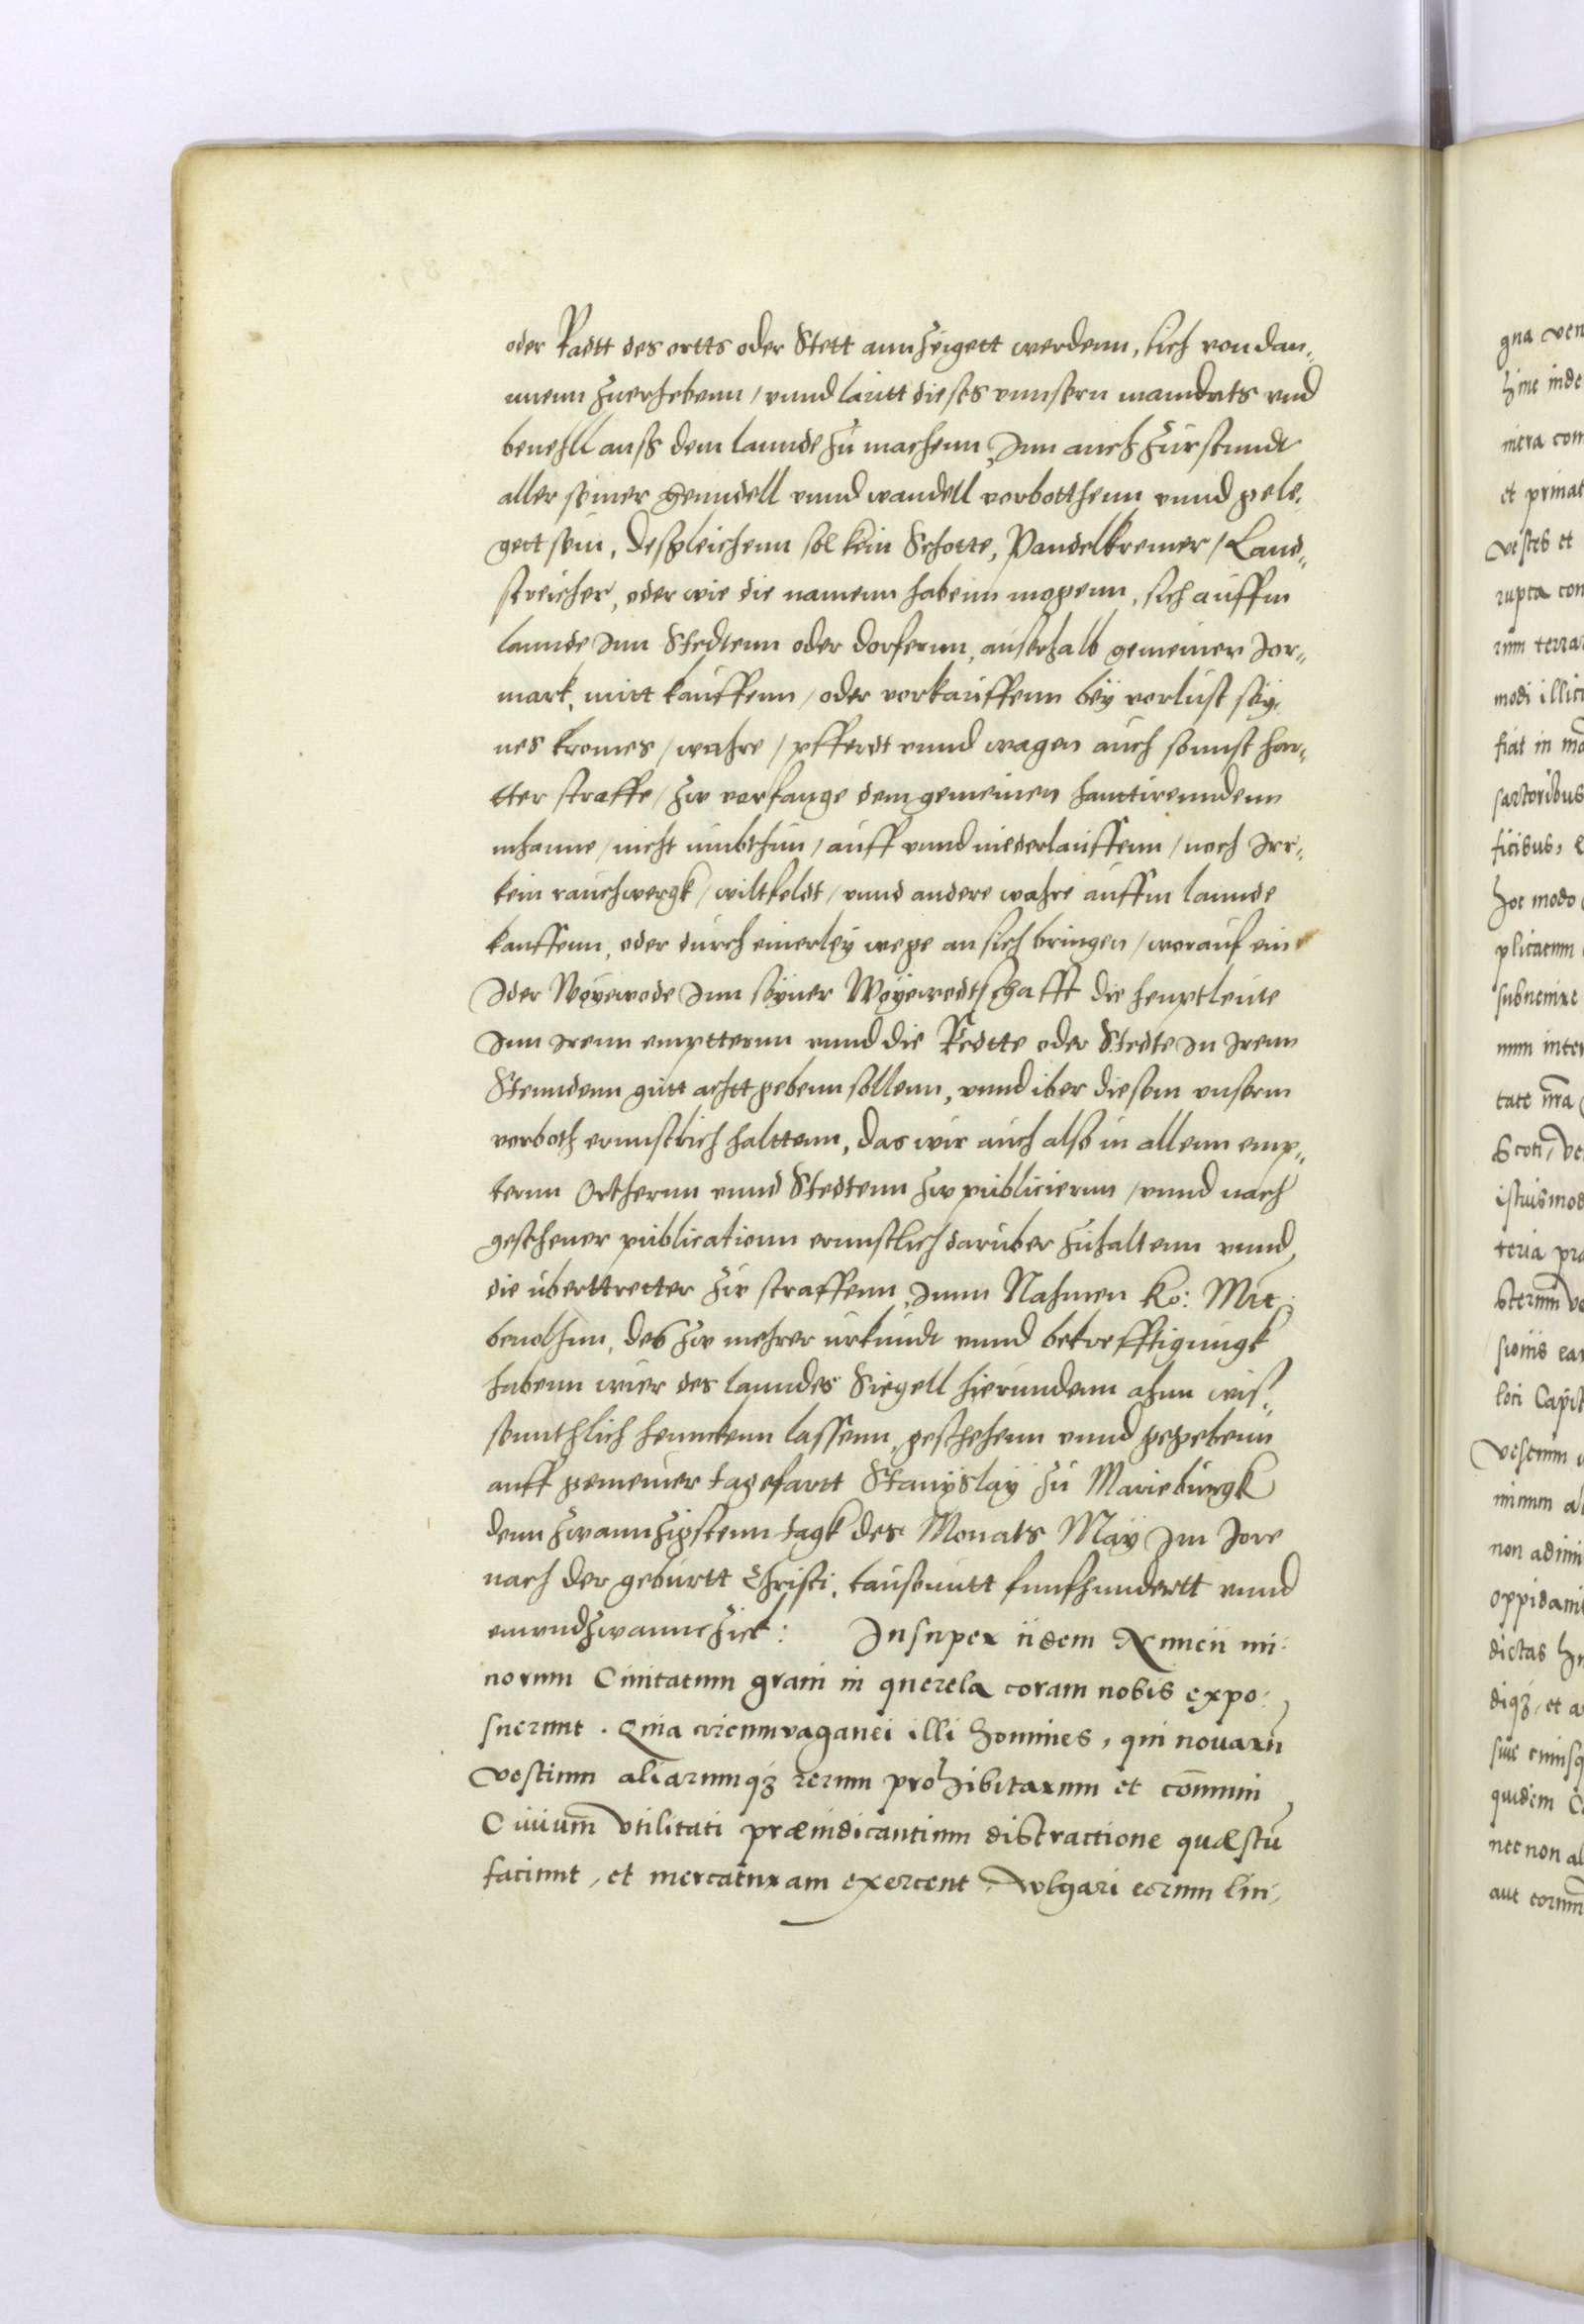 oder Radtt des ortts oder Stett annzeigett werdenn, sich von dan„
nnenn zuerhebenn / vnnd lautt dieses vnnsern manndats vnd
beuehll auss dem lannde zu machenn, Inn auch zur stundt
aller seiner henndell vnnd wandell vorbotthenn vnnd gele„
gett sein, Desgleichenn sol kein Schotte, Pandelkremer / Land„
streicher, oder wie die namenn habenn mogenn, sich auffm
lannde Inn Stedtenn oder dorfernn, ausserhalb gemeiner Jor„
mark, mitt kauffenn / oder vorkauffenn beÿ vorlust seÿ„
nes kromes / wahre / pfferdt vnnd wagen auch sonnst har„
tter straffe / zw vorfange dem gemeinen hanttirenndenn
mhanne / nicht umbthun / auff vnnd niederlauffenn / noch Irr„
kein rauchwergk / wiltfeldt / vnnd andere wahre auffm lannde
kauffenn, oder durch einerleÿ wege an sich bringen / worauf ein
Ider Woÿewode Inn seÿner Woÿewodtschafft die heuptleute
Inn Irenn empternn vnnd die Redtte oder Stedte In Irenn
Stenndenn gutt achtt gebenn sollenn, vnnd iber diesem vnserm
vorboth ernnstlich halttenn, das wir auch also in allenn emp„
ternn Orthernn vnnd Stedtenn zw publiciernn / vnnd nach
geschener publicationn ernnstlich daruber zuhaltenn vnnd
die uberttretter zw straffenn, Imm Nahmen Ko: Mtt:
beuolhnn, des zw mehrer urkundt vnnd bekrefftigungk
habenn wier des lanndes Siegell hierundenn ahnn wis„
sennthlich henncken lassenn, geschehenn vnnd gegebenn
auff gemeiner tagefartt Stanÿslaÿ zu Marieburgk
denn zwannzigstenn tagk des Monats Maÿ Im Jore
nach der geburtt Christi, tausenntt funfhundertt vnnd
einvndzwannczick: Insuper iidem Nuncii mi:
norum Ciuitatum graui in querela coram nobis expo:
suerunt. Quia circumuaganei illi homines, qui nouarū
vestium aliarumqꝫ rerum prohibitarum et com̄uni
Ciuium̄ vtilitati præiudicantium distractione quæstū
faciunt, et mercaturam exercent, vulgari eorum lin„
gna ven
hinc inde
mera com
et priuat
vestes et
rupta con
rum terra
modi illici
fiat in
sartoribus
ficibus,
hoc modo
plicatum
subuenire
num inter
tate nr̄a
Scoti, ve
istuismod
teria pra
sternm̄ ve
sionis ear
loci Capit
vestium
minum al
non adimi
oppidani
dictas
diqꝫ, et a
siue cuiusq
quidem
nec non al
aut eorum̄